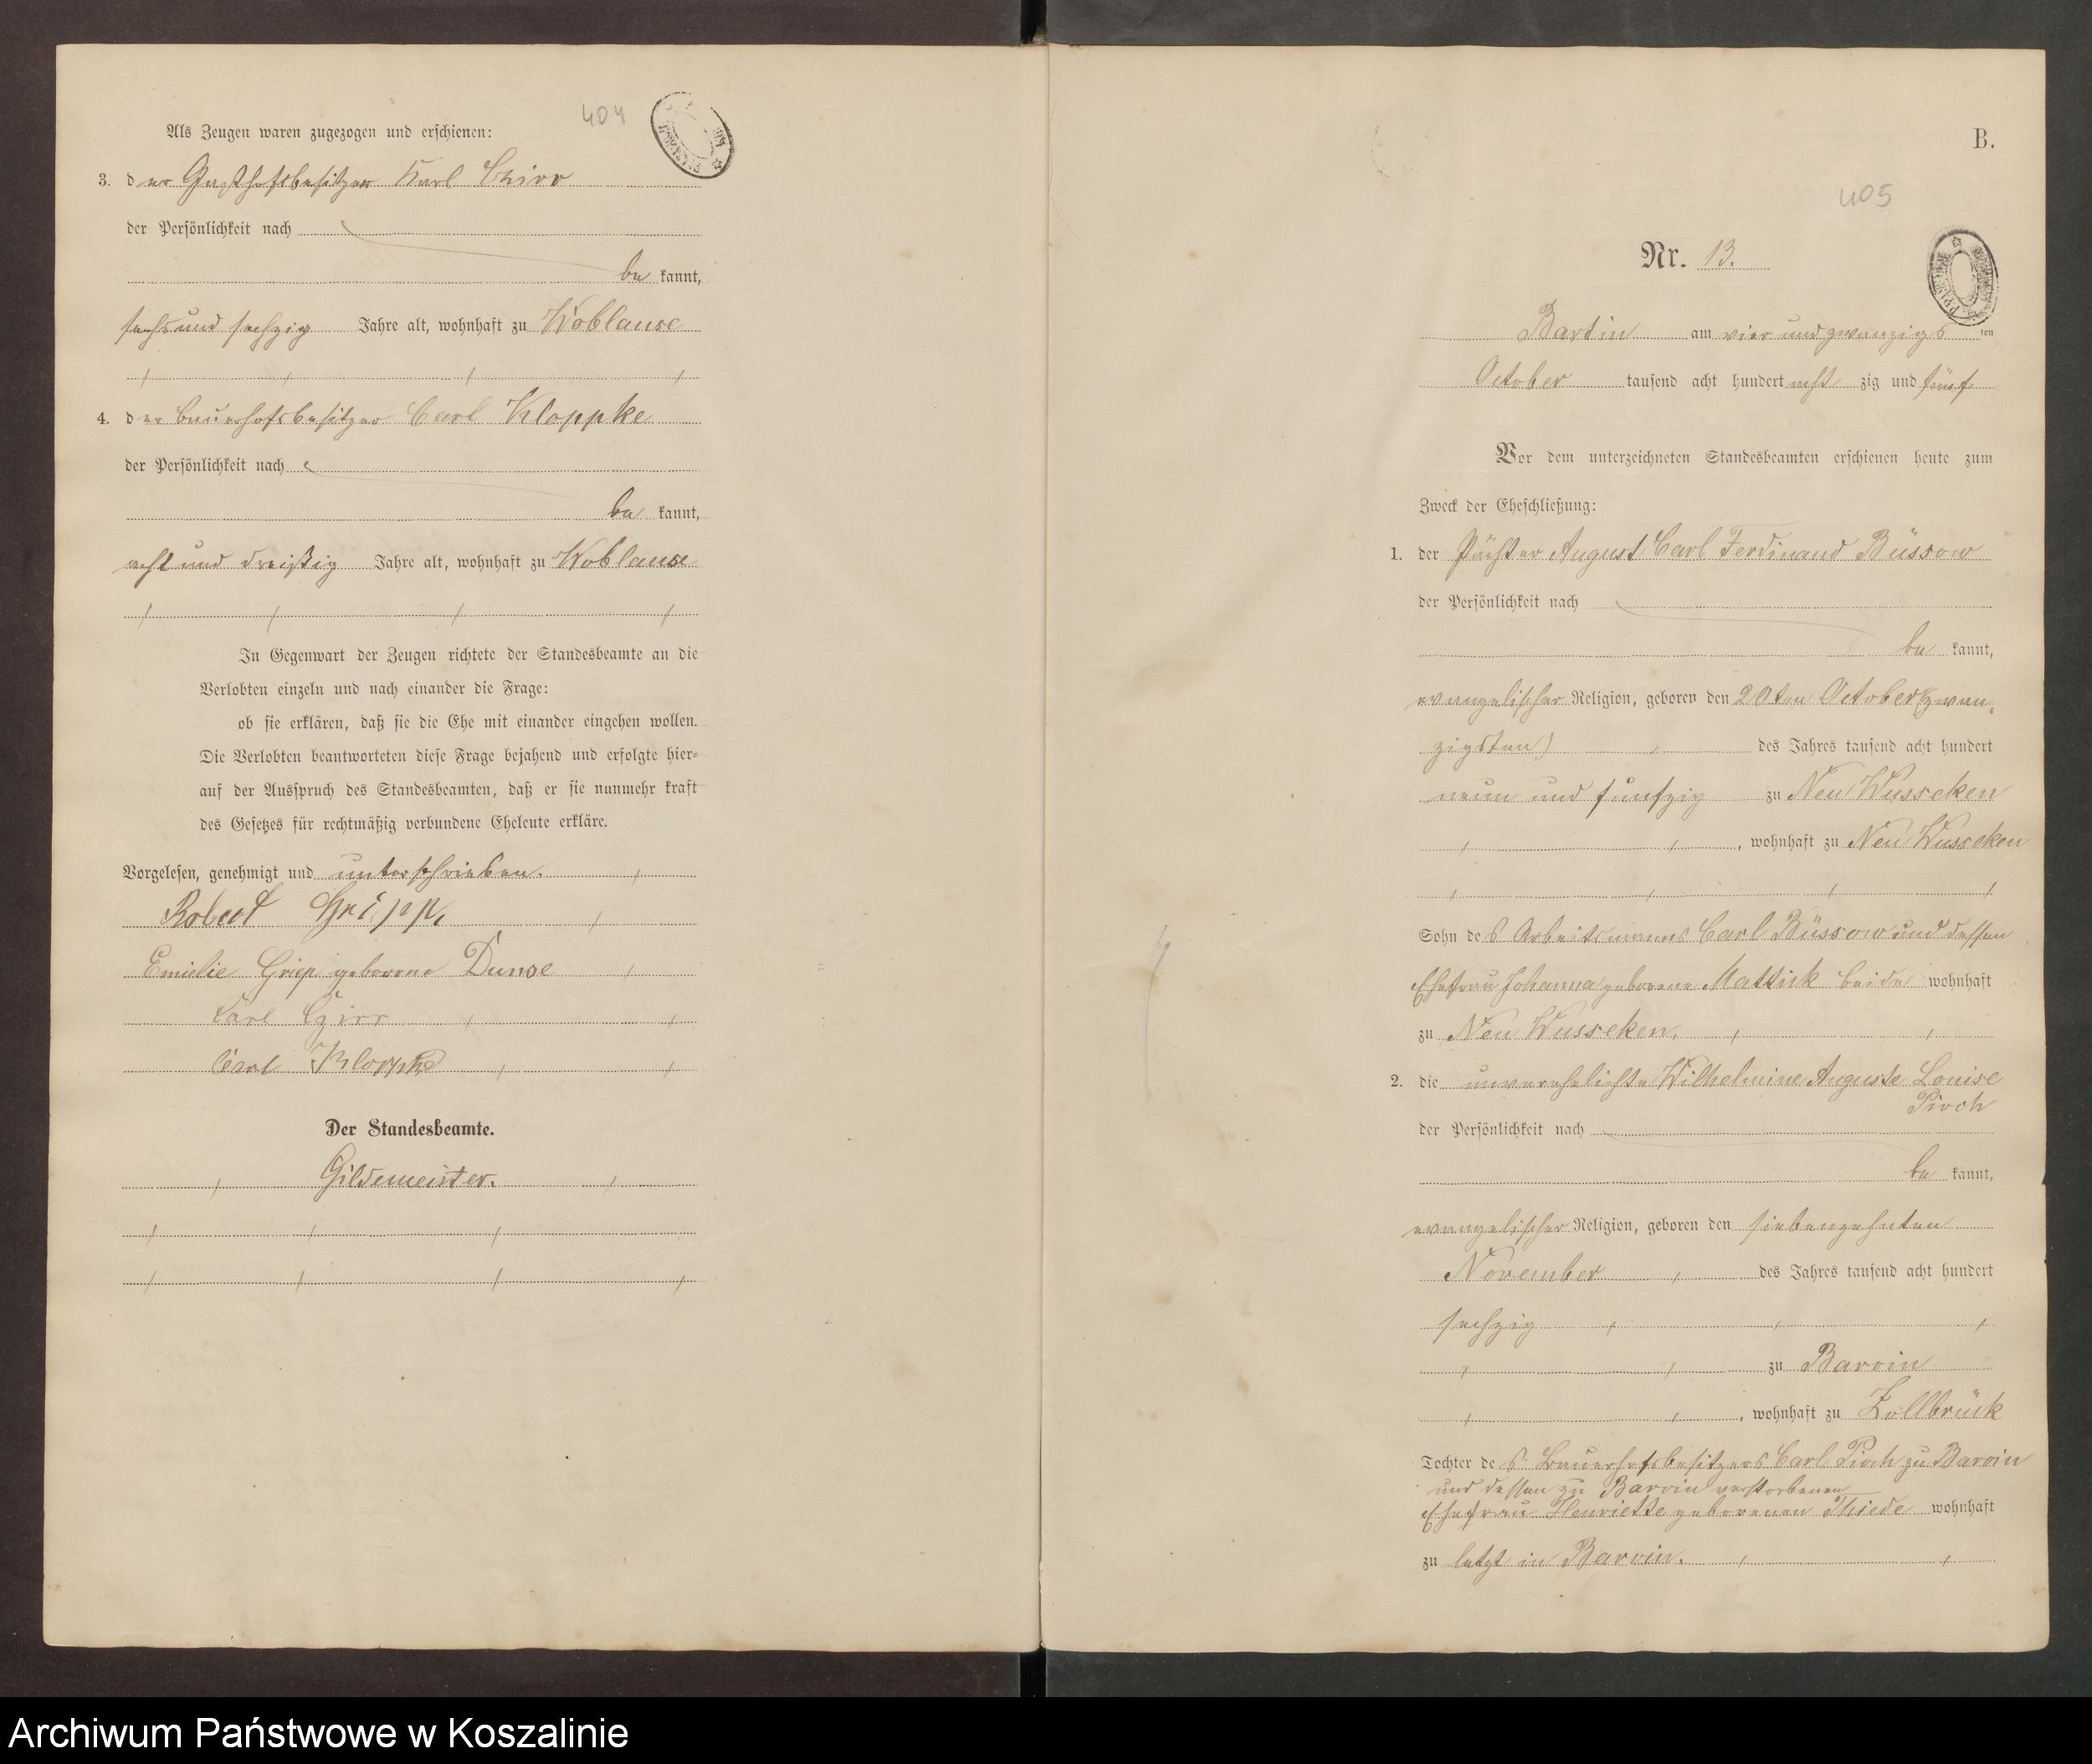 404
Als Zeugen waren zugezogen und erschienen:
3. der Gasthofsbesitzer Karl Czirr
der Persönlichkeit nach
be kannt,
sechs und sechzig Jahre alt, wohnhaft zu Woblanse
4. der Bauerhofsbesitzer Carl Kloppke
der Persönlichkeit nach
be kannt,
acht und dreißig Jahre alt, wohnhaft zu Woblanse
In Gegenwart der Zeugen richtete der Standesbeamte an die
Verlobten einzeln und nach einander die Frage:
ob sie erklären, daß sie die Ehe mit einander eingehen wollen.
Die Verlobten beantworteten diese Frage bejahend und erfolgte hier-
auf der Ausspruch des Standesbeamten, daß er sie nunmehr kraft
des Gesetzes für rechtmäßig verbundene Eheleute erkläre.
Vorgelesen, genehmigt und unterschrieben.
Robert
Emielie Griep geborene Dunse
Karl Czirr
Carl Kloppke
Der Standesbeamte.
Gildemeister.
B.
405
Nr. 13.
Bartin am vier und zwanzigs ten
October tausend acht hundert acht zig und fünf
Vor dem unterzeichneten Standesbeamten erschienen heute zum
Zweck der Eheschließung:
1. der Pächter August Carl Ferdinand Büssow
der Persönlichkeit nach
be kannt,
evangelischer Religion, geboren den 20ten October (zwan-
zigsten) des Jahres tausend acht hundert
neun und fünfzig zu Neu Wusseken
, wohnhaft zu Neu Wusseken
Sohn des Arbeitsmanns Carl Büssow und dessen
Ehefrau Johanna geborene Mattick beide wohnhaft
zu Neu Wusseken.
2. die unverehelichte Wilhelmine Auguste Louise
Pioch
der Persönlichkeit nach
be kannt,
evangelischer Religion, geboren den siebenzehnten
November des Jahres tausend acht hundert
sechzig
zu Barvin
, wohnhaft zu Zollbrück
Tochter des Bauerhofsbesitzers Carl Pioch zu Barvin
und dessen zu Barvin verstorbenen
Ehefrau Henriette geborenen Thiede wohnhaft
zu letzt in Barvin.
Archiwum Państwowe w Koszalinie